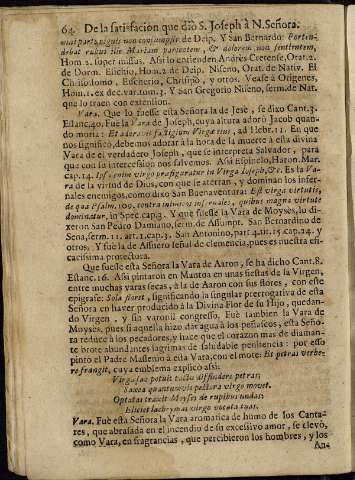 64. De la satisfacion que diò S. Joseph à N. Señora.
Hom.2. super missus. Assi lo entienden Andrès Cretense, Orat.2.
de Dorm. Esichio, Hom.2. de Deip. Niseno, Orat. de Nativ. El
Chrisostomo, Eucherio, Chrisipo, y otros. Vease à Origenes,
Hom.1. ex dec. var. tom.3. Y San Gregorio Niseno, serm. de Nat.
que lo traen con extension.
Vara. Que lo fuesse esta Señora la de Jesè, se dixo Cant.3.
Estanc.40. Fue la Vara de Joseph, cuya altura adorò Jacob quan-
do moria: Et adoravit fastigium Virga eius, ad Hebr.11. En que
nos significò, debemos adorar à la hora de la muerte à esta divina
Vara de el verdadero Joseph, que se interpreta Salvador, para
que con su intercession nos salvemos. Assi Espinelo, Haron. Mar.
cap.14. Ipsa enim virgo præfiguratur in Virga Joseph, &c. Es la Va-
ra de la virtud de Dios, con que se aterran, y dominan los infer-
nales enemigos, como dixo San Buenaventura: Est virga virtutis,
de qua Psalm. 109. contra inimicos infernales, quibus magna virtute
dominatur, in Spec. cap.3. Y que fuesse la Vara de Moysès, lo di-
xeron San Pedro Damiano, serm. de Assumpt. San Bernardino de
Sena, serm.11. art.1. cap.3. San Antonino, part.4. tit.15. cap.14. y
otros. Y fuè la de Assuero señal de clemencia, pues es nuestra efi-
cacissima protectora.
Que fuesse esta Señora la Vara de Aaron, se ha dicho Cant.8.
Estanc.16. Assi pintaron en Mantoa en unas fiestas de la Virgen,
entre muchas varas secas, à la de Aaron con sus flores, con este
epigrafe: Sola floret, significando la singular prerrogativa de esta
Señora en haver producido à la Divina Flor de su Hijo, quedan-
do Virgen, y sin varonil congresso. Fuè tambien la Vara de
Moysès, pues si aquella hizo dàr agua à los peñascos, esta Seño-
ra reduce à los pecadores, y hace que el corazon mas de diaman-
te brote abundantes lagrimas de saludable penitencia: por esso
pintò el Padre Masseron à esta Vara, con el mote: Et petras verbe-
re frangit, cuya emblema explicò assi:
Virga hæc potuit tactu diffindere petras;
Saxea quantumvis pectora virgo movet.
Optatas traxit Moyses de rupibus undas;
Eliciet lachrymas virgo vocata tuas.
Vara. Fue esta Señora la Vara aromatica de humo de los Canta-
res, que abrasada en el incendio de su excessivo amor, se elevò,
como Vara, en fragrancias, que percibieron los hombres, y los
An-